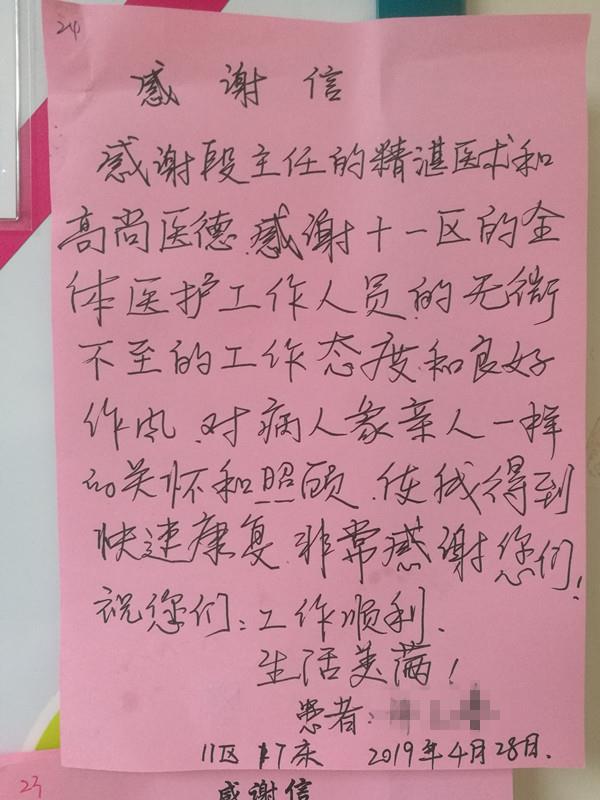 24
感谢信
感谢段主任的精湛医术和
高尚医德、感谢十一区的全
体医护工作人员的无微
不至的工作态度和良好
作风、对病人象亲人一样
的关怀和照顾、使我得到
快速康复、非常感谢您们!
祝您们:工作顺利、
生活美满!
患者:
11区 17床 2019年4月28日.
23
感谢信